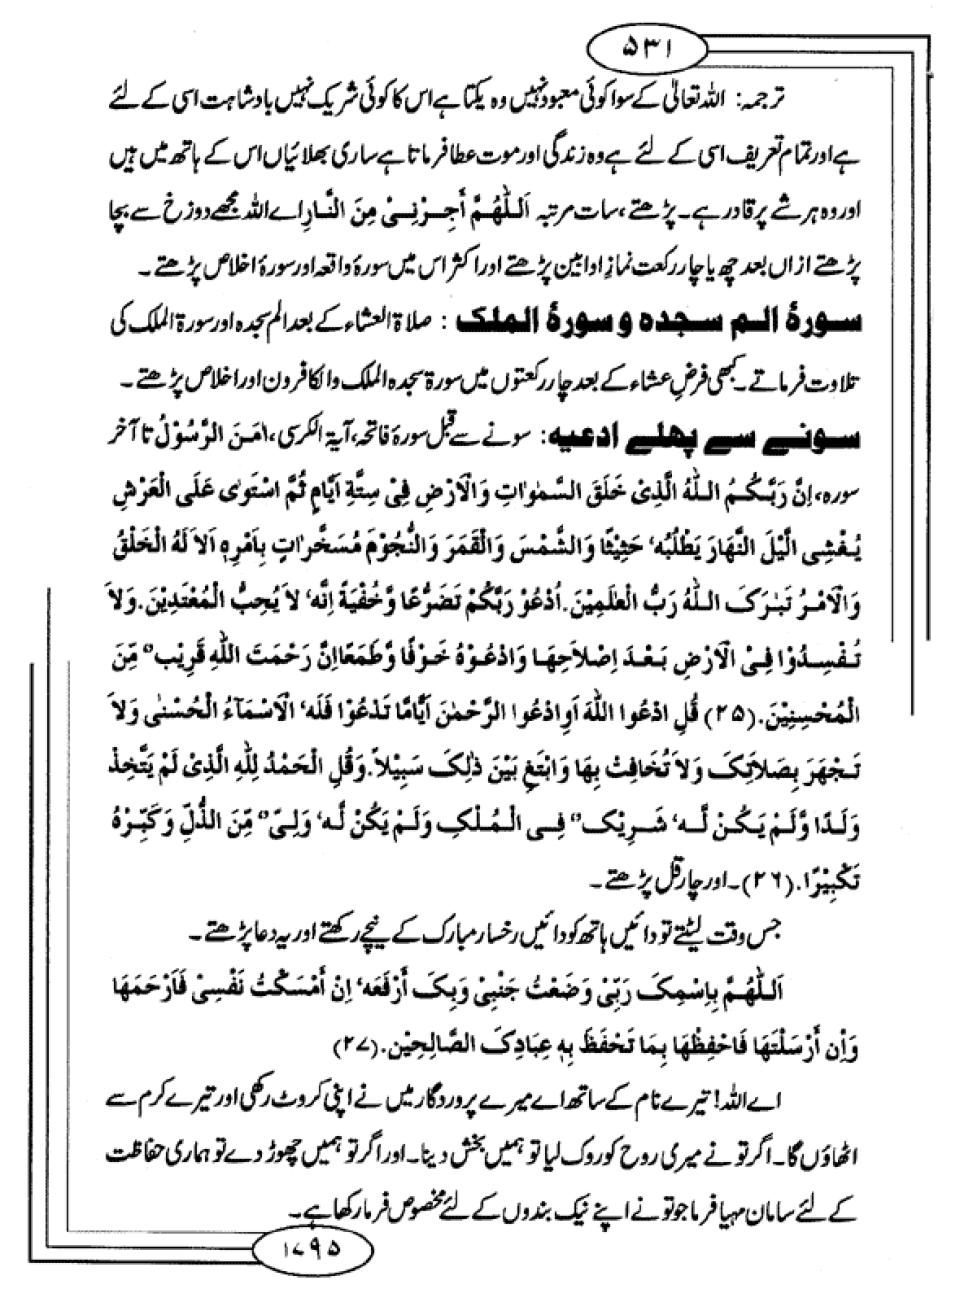 ۵۳۱
ترجمہ: اللہ تعالیٰ کے سوا کوئی معبود نہیں وہ یکتا ہے اس کا کوئی شریک نہیں بادشاہت اسی کے لئے
ہے اور تمام تعریف اسی کے لئے ہے وہ زندگی اور موت عطا فرماتا ہے ساری بھلائیاں اس کے ہاتھ میں ہیں
اور وہ ہر شے پر قادر ہے۔ پڑھتے، سات مرتبہ اَللّٰهُمَّ أَجِرْنِیْ مِنَ النَّارِ اے اللہ مجھے دوزخ سے بچا
پڑھتے ازاں بعد چھ یا چار رکعت نمازِ اوابین پڑھتے اور اکثر اس میں سورۂ واقعہ اور سورۂ اخلاص پڑھتے۔
سورۂ الم سجدہ و سورۂ الملک : صلاۃ العشاء کے بعد الم سجدہ اور سورۃ الملک کی
تلاوت فرماتے۔ کبھی فرضِ عشاء کے بعد چار رکعتوں میں سورۃ سجدہ الملک والکافرون اور اخلاص پڑھتے۔
سونے سے پھلے ادعیہ: سونے سے قبل سورۂ فاتحہ، آیۃ الکرسی، اٰمَنَ الرَّسُوْلُ تا آخر
سورہ، اِنَّ رَبَّکُمُ اللّٰهُ الَّذِیْ خَلَقَ السَّمٰوٰاتِ وَالْاَرْضِ فِیْ سِتَّةِ اَیَّامٍ ثُمَّ اسْتَوٰی عَلَی الْعَرْشِ
یُغْشِی الَّیْلَ النَّهَارَ یَطْلُبُه' حَثِیْثًا وَالشَّمْسَ وَالْقَمَرَ وَالنُّجُوْمَ مُسَخَّرَاتٍ بِاَمْرِہٖ اَلاَ لَهُ الْخَلْقُ
وَالْاَمْرُ تَبٰرَکَ اللّٰهُ رَبُّ الْعٰلَمِیْنَ. اُدْعُوْ رَبَّکُمْ تَضَرُّعًا وَّخُفْیَةً اِنَّه' لاَ یُحِبُّ الْمُعْتَدِیْنَ. وَلاَ
تُفْسِدُوْا فِیْ الْاَرْضِ بَعْدَ اِصْلاَحِهَا وَادْعُوْهُ خَوْفًا وَّطَمَعًا اِنَّ رَحْمَتَ اللّٰهِ قَرِیْب'' مِّنَ
الْمُحْسِنِیْنَ. (۲۵) قُلِ ادْعُوا اللّٰهَ اَوِادْعُوا الرَّحْمٰنَ اَیًّامَّا تَدْعُوْا فَلَه' الْاَسْمَآءُ الْحُسْنٰی وَلاَ
تَجْهَرْ بِصَلاَتِکَ وَلاَ تُخَافِتْ بِهَا وَابْتَغِ بَیْنَ ذٰلِکَ سَبِیْلاً. وَقُلِ الْحَمْدُ لِلّٰهِ الَّذِیْ لَمْ یَتَّخِذْ
وَلَدًا وَّلَمْ یَکُنْ لَّه' شَرِیْک'' فِی الْمُلْکِ وَلَمْ یَکُنْ لَّه' وَلِیّ'' مِّنَ الذُّلِّ وَکَبِّرْهُ
تَکْبِیْرًا. (۲۶)۔ اور چار قل پڑھتے۔
جس وقت لیٹتے تو دائیں ہاتھ کو دائیں رخسار مبارک کے نیچے رکھتے اور یہ دعا پڑھتے۔
اَللّٰهُمَّ بِاِسْمِکَ رَبِّیْ وَضَعْتُ جَنْبِیْ وَبِکَ أَرْفَعَه' اِنْ أَمْسَکْتُ نَفْسِیْ فَاَرْحَمَهَا
وَاِن أَرْسَلْتَهَا فَاحْفِظْهَا بِمَا تَحْفَظَ بِهٖ عِبَادِکَ الصَّالِحِیْن. (۲۷)
اے اللہ! تیرے نام کے ساتھ اے میرے پروردگار میں نے اپنی کروٹ رکھی اور تیرے کرم سے
اٹھاؤں گا۔ اگر تو نے میری روح کو روک لیا تو ہمیں بخش دینا۔ اور اگر تو ہمیں چھوڑ دے تو ہماری حفاظت
کے لئے سامان مہیا فرما جو تو نے اپنے نیک بندوں کے لئے مخصوص فرما رکھا ہے۔
۱۷۹۵